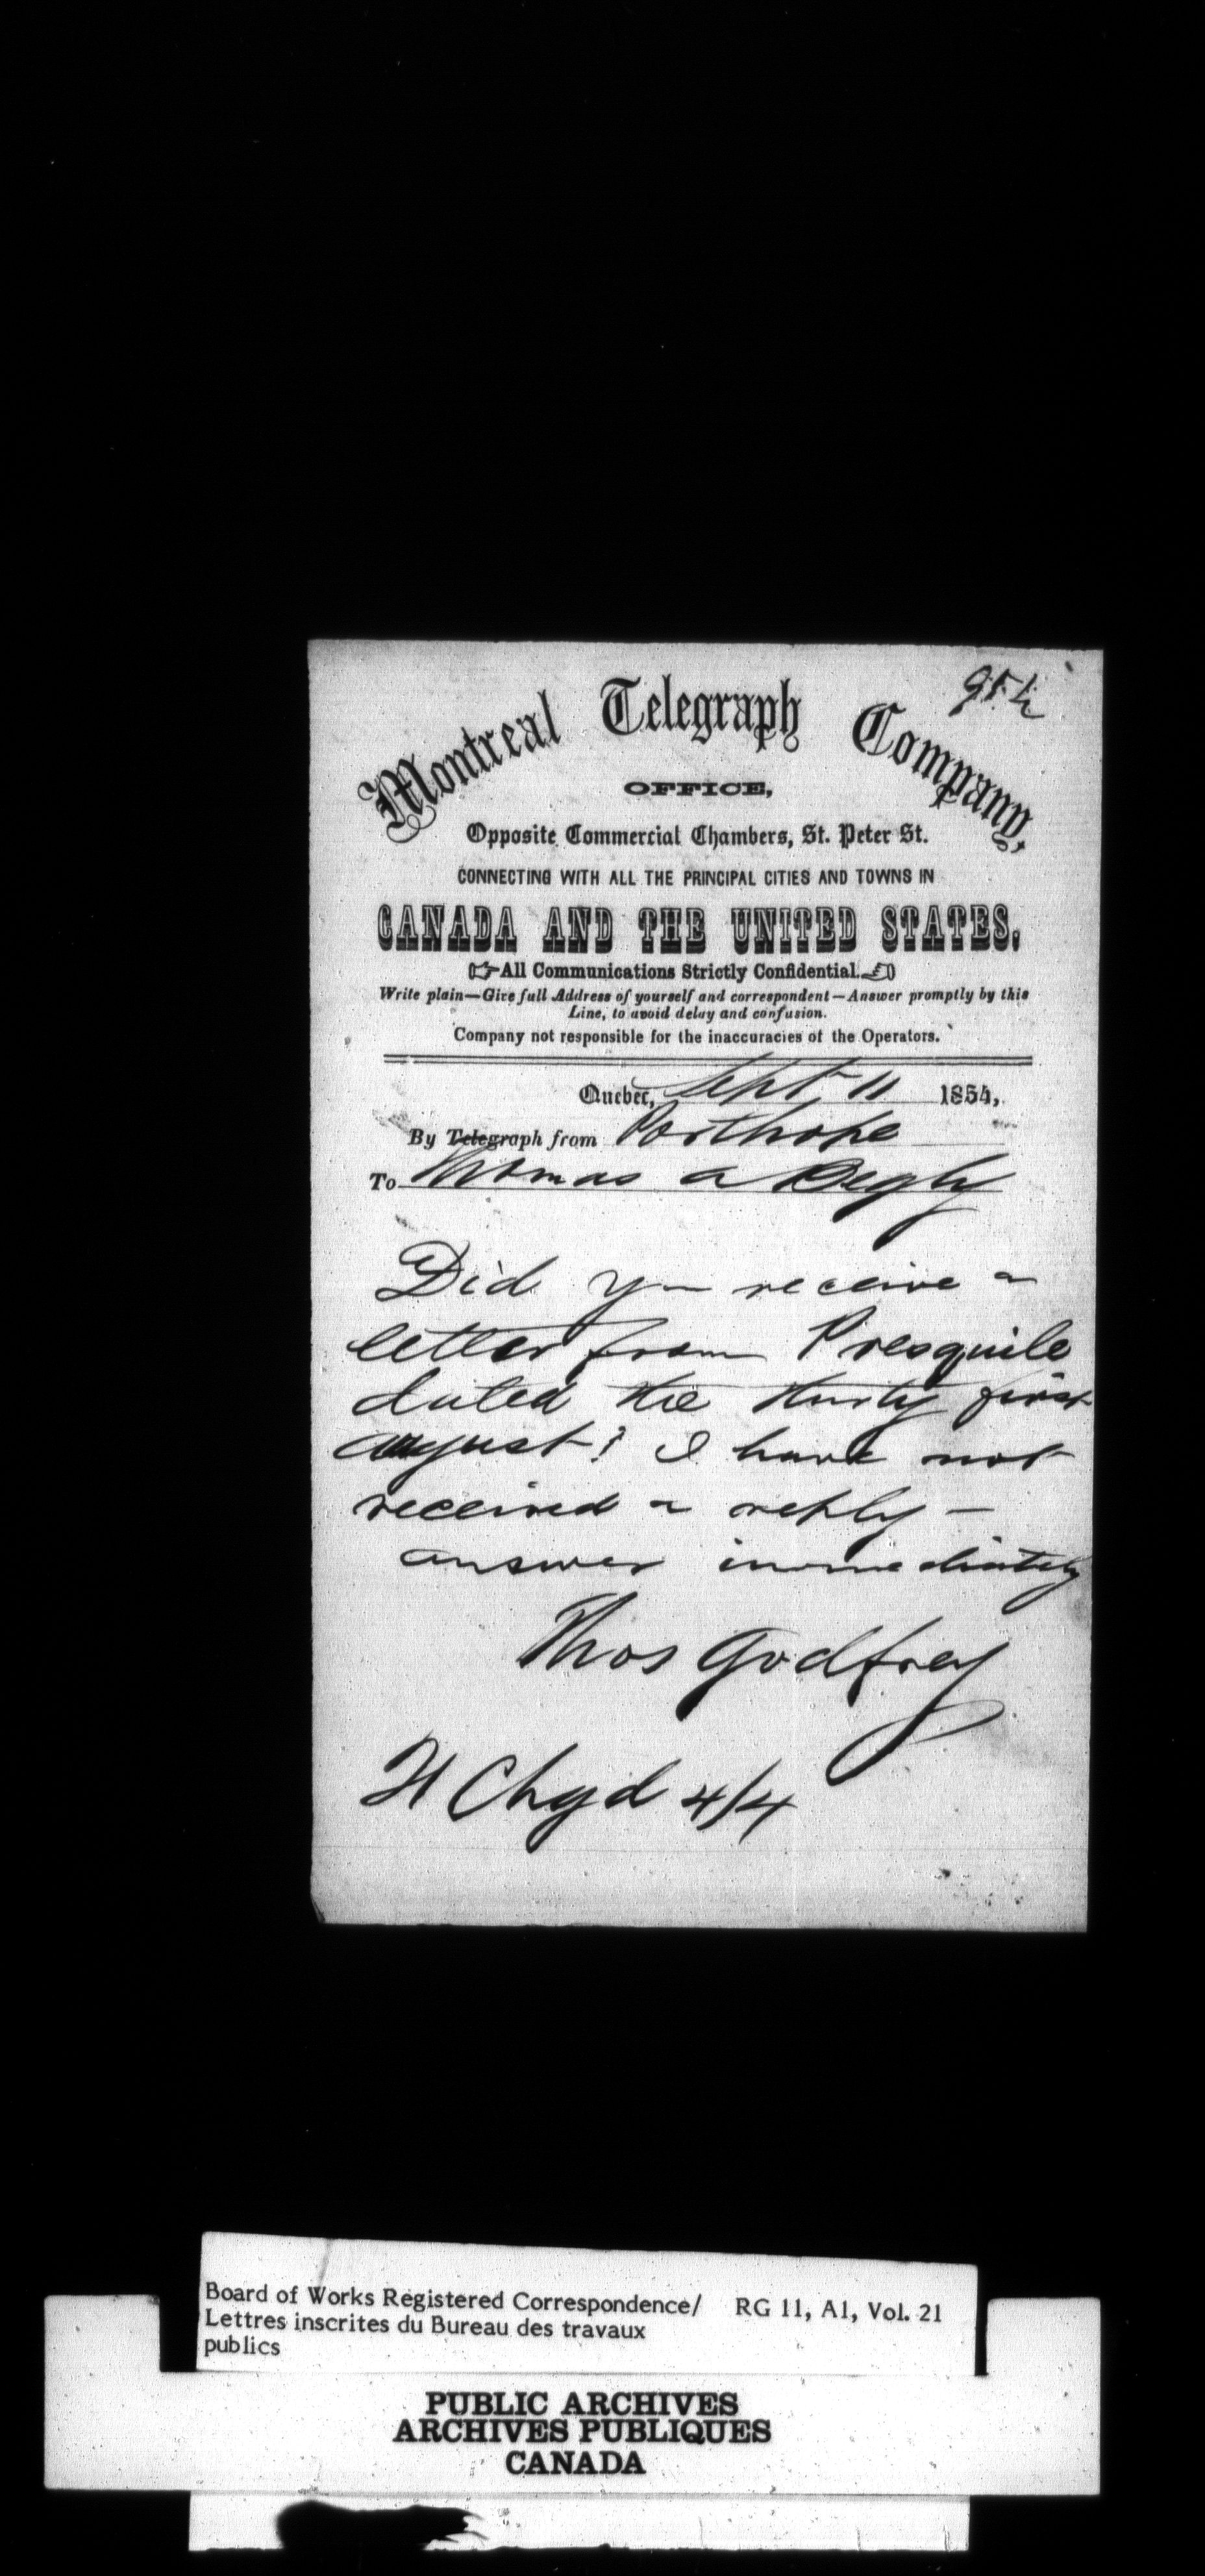 Montreal Telegraph Company,
OFFICE,
Opposite Commercial Chambers, St. Peter St.
CONNECTING WITH ALL THE PRINCIPAL CITIES AND TOWNS IN
CANADA AND THE UNITED STATES.
All Communications Strictly Confidential.
Write plain—Give full Address of yourself and correspondent—Answer promptly by this
Line, to avoid delay and confusion.
Company not responsible for the inaccuracies of the Operators.
Quebec, Sept 11 1854,
By Telegraph from Porthope
To Thomas a Begly
Did you receive a
letter from Presquile
dated the thirty first
august? I have not
received a reply —
answer immediately
Thos Godfrey
Chgd 4/4
Board of Works Registered Correspondence/ RG 11, A1, Vol. 21
Lettres inscrites du Bureau des travaux
publics
PUBLIC ARCHIVES
ARCHIVES PUBLIQUES
CANADA